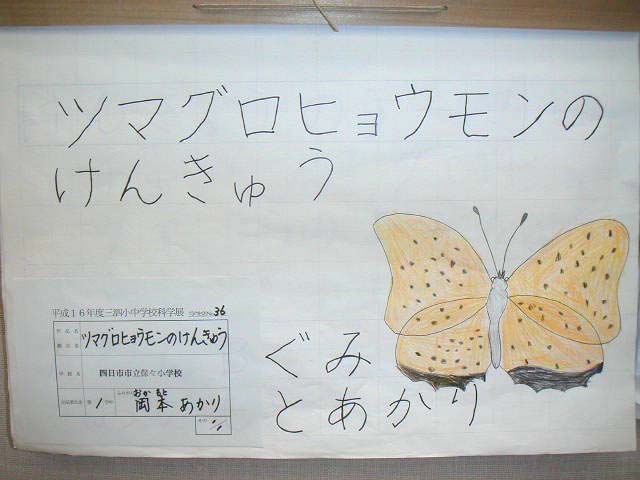 ツマグロヒョウモンの
けんきゅう
ぐみ
とあかり
平成16年度三泗小中学校科学展 36
ツマグロヒョウモンのけんきゅう
学校名 四日市市立保々小学校
第1学年 ふりがな おか もと
岡本 あかり